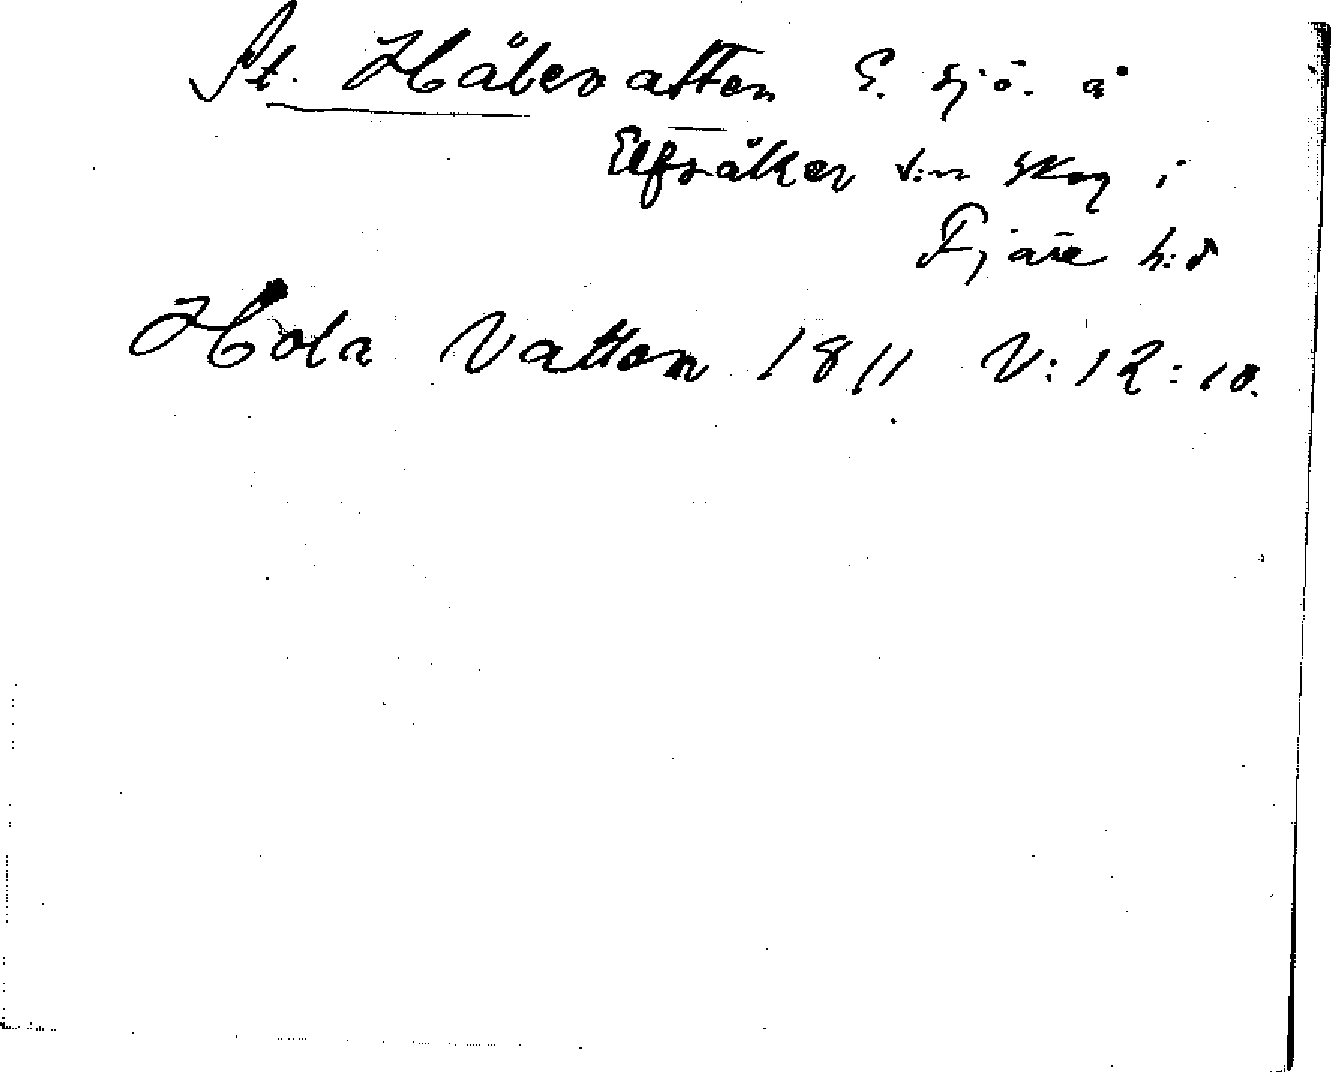 St. Hålevatten E. sjö. å
Elfsåker v:n skog i
Fjäre h:d
Hola Vatten 1811 V:12:10.